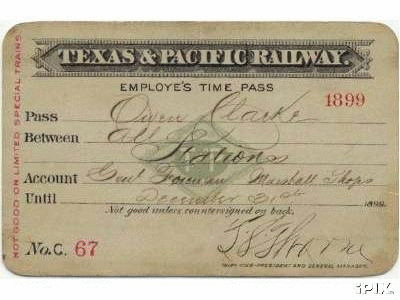 TEXAS & PACIFIC RAILWAY.
EMPLOYE'S TIME PASS
1899
Pass Owen Clarke
Between All Stations
Account Genl Foreman Marshall Shops
Until December 31st 1899.
Not good unless countersigned on back.
No. C. 67
THIRD VICE-PRESIDENT AND GENERAL MANAGER.
NOT GOOD ON LIMITED SPECIAL TRAINS
iPIX